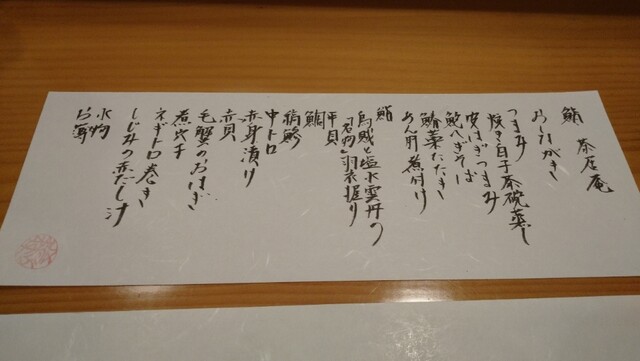 鮨 茶屋庵
おしながき
つまみ
焼き白子茶碗蒸し
皮はぎつまみ
鮫へぎそば
鰆藁たたき
あん肝煮付け
鮨
烏賊と塩水雲丹の
「名物」羽衣握り
平貝
鯛
縞鯵
中トロ
赤身漬け
赤貝
毛蟹のおはぎ
煮穴子
ネギトロ巻き
しじみの赤だし汁
水物
お薄